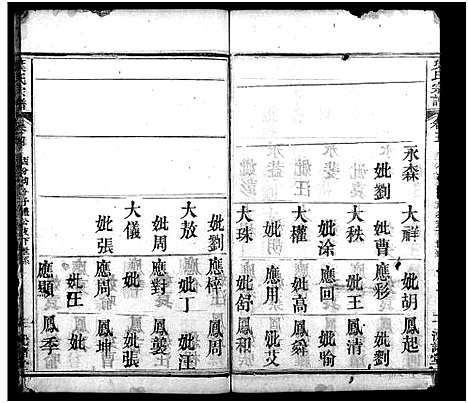 氏宗譜
永森 大祥 妣胡 鳳起
妣劉 妣曹 應彩 妣劉
大秩 妣王 鳳清
妣涂 應回 妣喻
大權 妣高 鳳
妣明 應用 妣艾
大珠 妣舒 鳳和
妣劉 應梓 鳳周
大放 妣丁 妣汪
妣周 應對 鳳
大儀 妣張
妣張 應周 鳳坤
妣汪
應顯 鳳季
氏宗譜